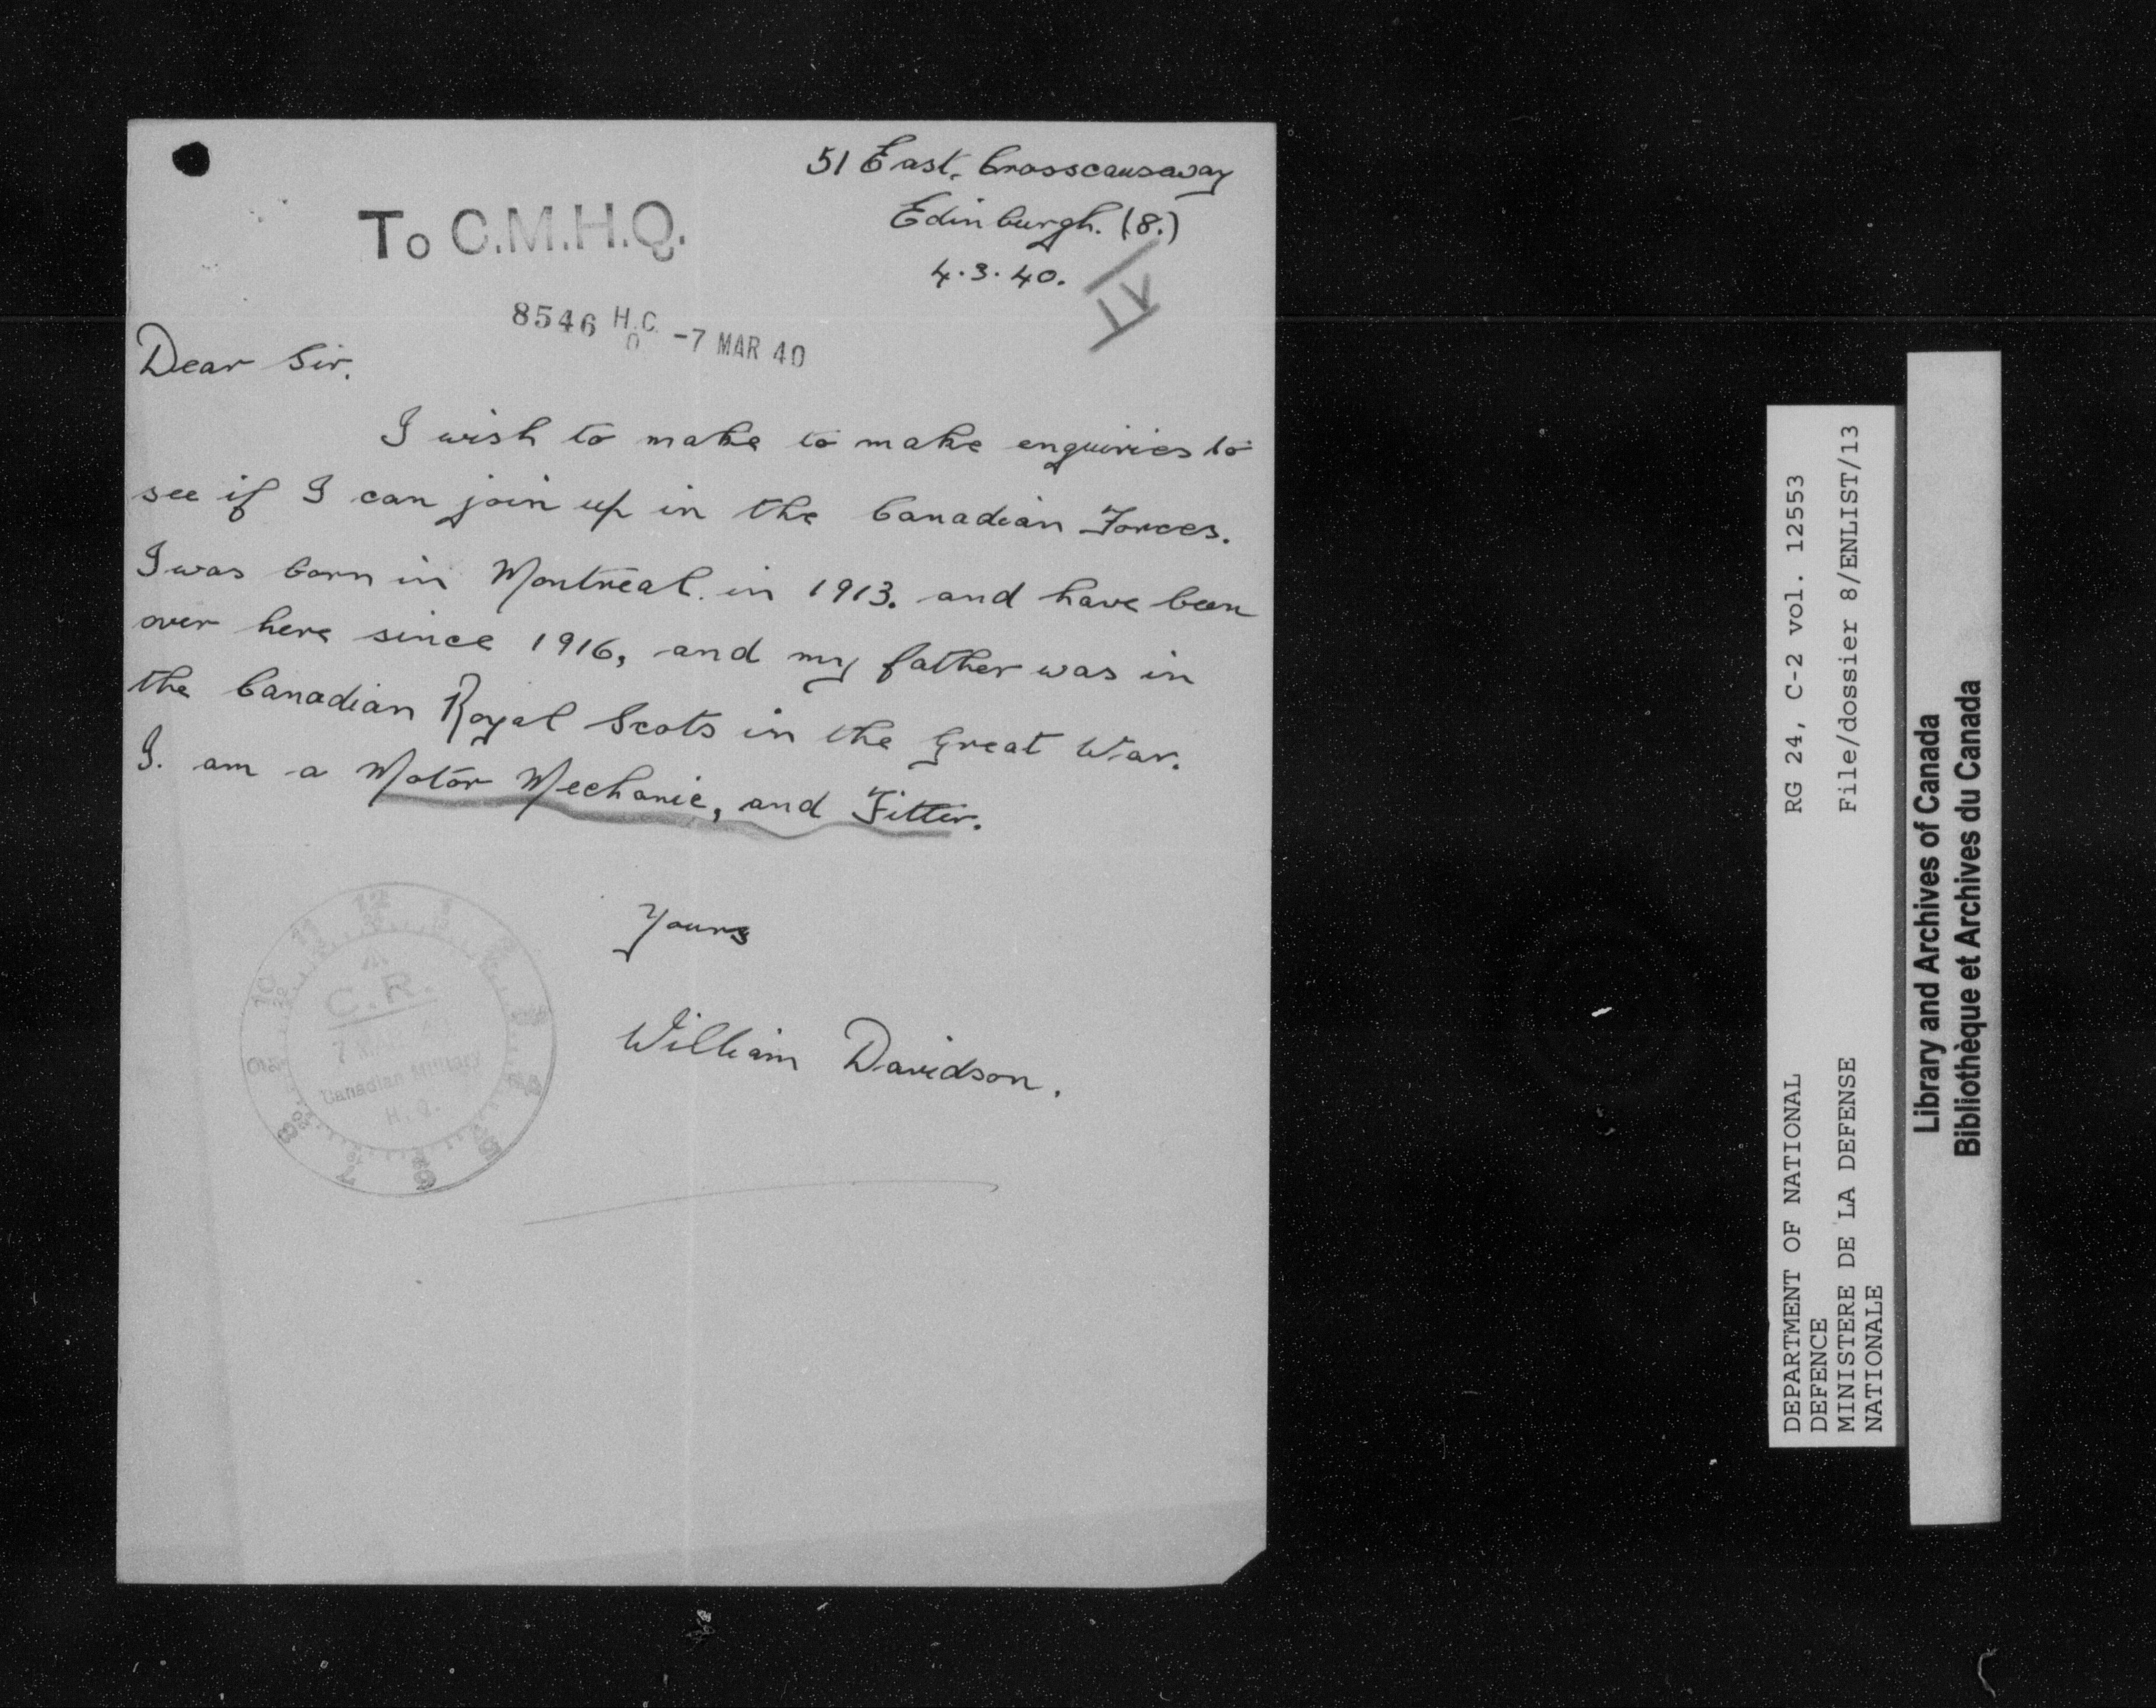 51 East. Crosscauseway
Edinburgh. (8.)
4.3.40.
IV
To C.M.H.Q.
8546 H.C. O -7 MAR 40
Dear Sir.
I wish to make to make enquiries to
see if I can join up in the Canadian Forces.
I was born in Montreal. in 1913. and have been
over here since 1916, and my father was in
the Canadian Royal Scots in the Great War.
I. am a Motor Mechanic, and Fitter.
Yours
William Davidson.
C.R.
Canadian Military
H.Q.
RG 24, C-2 vol. 12553
File/dossier 8/ENLIST/13
DEPARTMENT OF NATIONAL
DEFENCE
MINISTERE DE LA DEFENSE
NATIONALE
Library and Archives of Canada
Bibliothèque et Archives du Canada